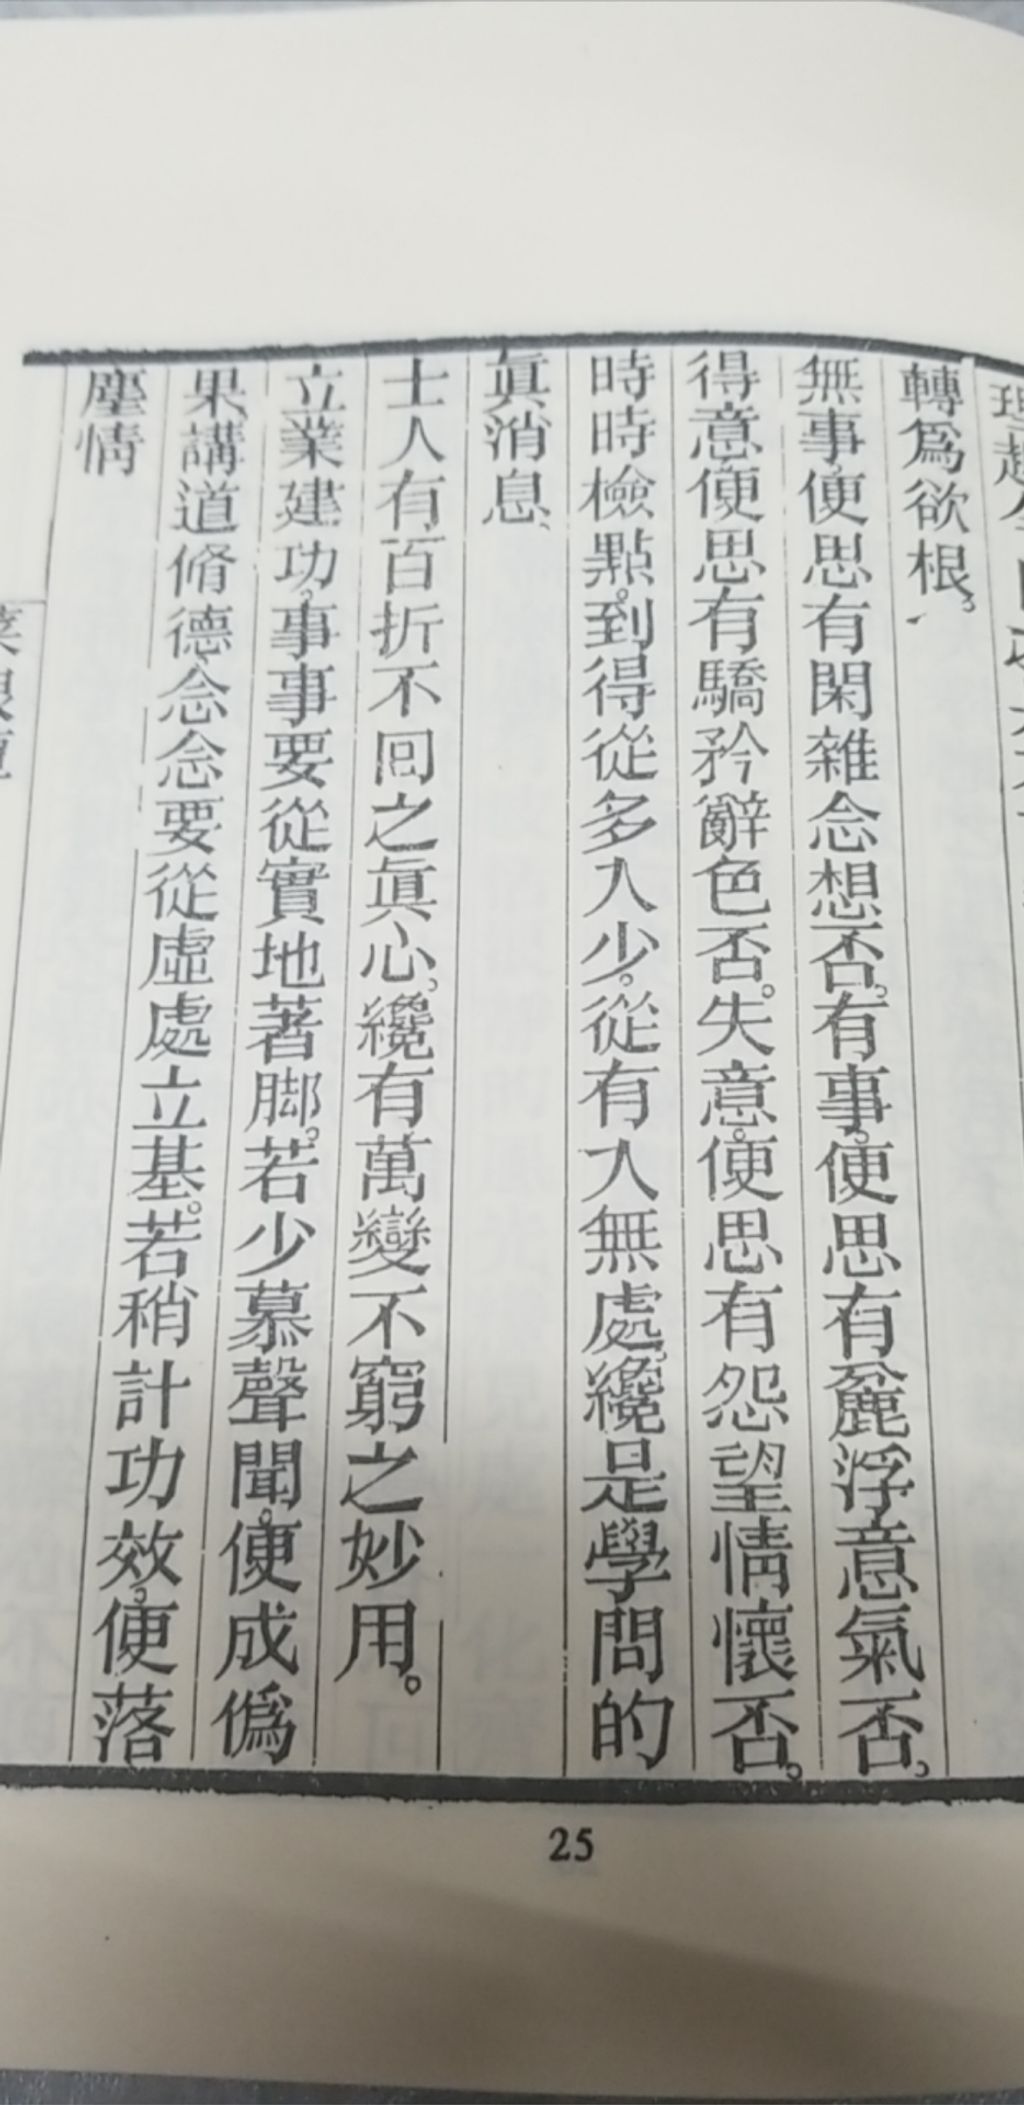 轉爲欲根。
無事便思有閑雜念想否。有事。便思有麄浮意氣否。
得意便思有驕矜辭色否。失意。便思有怨望情懷否。
時時檢點。到得從多入少。從有入無處。纔是學問的
眞消息、
士人有百折不回之眞心。纔有萬變不窮之妙用。
立業建功。事事要從實地著脚。若少慕聲聞。便成僞
果、講道脩德、念念要從虛處立基。若稍計功效。便落
塵情
25